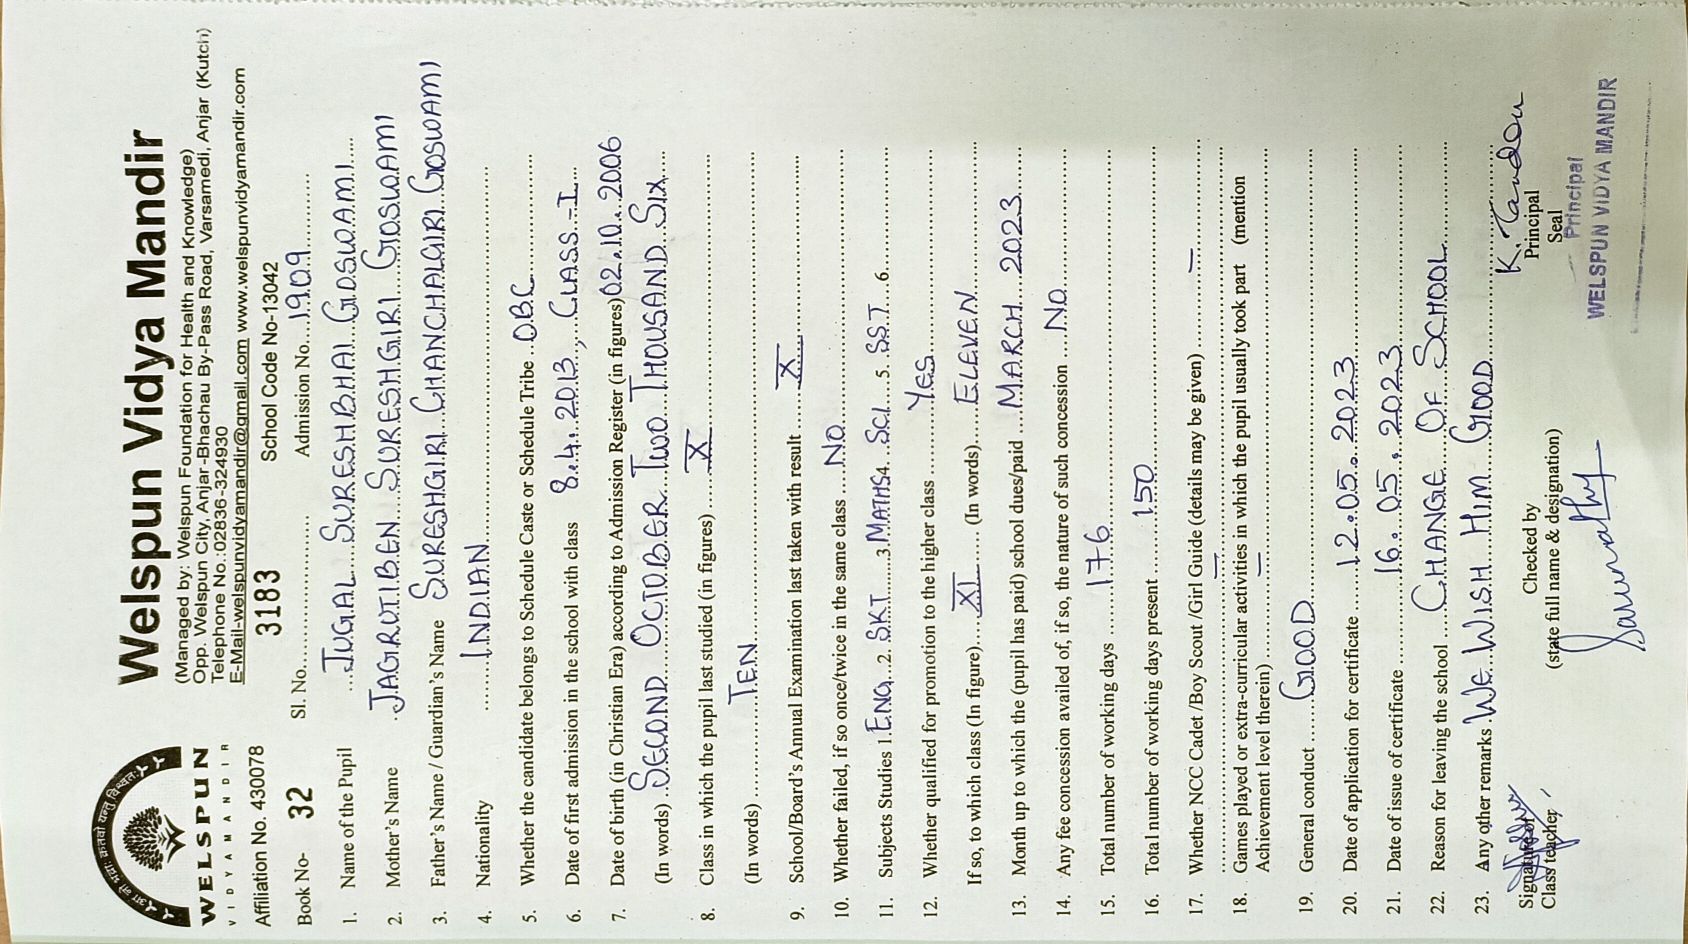 WELSPUN
VIDYA MANDIR
Welspun Vidya Mandir
(Managed by: Welspun Foundation for Health and Knowledge)
Opp. Welspun City, Anjar-Bhachau By-Pass Road, Varsamedi, Anjar (Kutch)
Telephone No.:02836-324930
E-Mail-welspunvidyamandir@gmail.com www.welspunvidyamandir.com
Affiliation No. 430078 School Code No-13042
Book No- 32 Sl. No. 3183 Admission No. 1909
1. Name of the Pupil JUGAL SURESHBHAI GOSWAMI
2. Mother's Name JAGRUTIBEN SURESHGIRI GOSWAMI
3. Father's Name / Guardian's Name SURESHGIRI CHANCHALGIRI GOSWAMI
4. Nationality INDIAN
5. Whether the candidate belongs to Schedule Caste or Schedule Tribe OBC
6. Date of first admission in the school with class 8.4.2013, CLASS-I
7. Date of birth (in Christian Era) according to Admission Register (in figures) 02.10.2006
(In words) SECOND OCTOBER TWO THOUSAND SIX
8. Class in which the pupil last studied (in figures) X
(In words) TEN
9. School/Board's Annual Examination last taken with result X
10. Whether failed, if so once/twice in the same class NO
11. Subjects Studies 1. ENG 2. SKT 3. MATHS 4. SCI 5. SST 6.
12. Whether qualified for promotion to the higher class YES
If so, to which class (In figure) XI (In words) ELEVEN
13. Month up to which the (pupil has paid) school dues/paid MARCH 2023
14. Any fee concession availed of, if so, the nature of such concession NO
15. Total number of working days 176
16. Total number of working days present 150
17. Whether NCC Cadet /Boy Scout /Girl Guide (details may be given) —
—
18. Games played or extra-curricular activities in which the pupil usually took part (mention
Achievement level therein) —
19. General conduct GOOD
20. Date of application for certificate 12.05.2023
21. Date of issue of certificate 16.05.2023
22. Reason for leaving the school CHANGE OF SCHOOL
23. Any other remarks WE WISH HIM GOOD
K. Tandon
Class teacher
Checked by
(state full name & designation)
Principal
Seal
Principal
WELSPUN VIDYA MANDIR